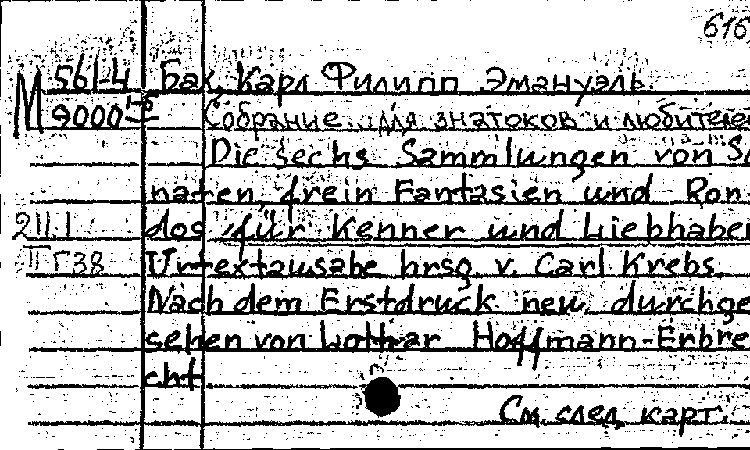 616
М 561-4 Бах, Карл Филипп Эмануэль.
9000 1-6 Собрание для знатоков и любителей
Die sechs Sammlungen von So
naten, frein Fantasien und Ron-
211.1 dos für Kenner und Liebhaber
III Г38 Urtextausabe hrsg. v. Carl Krebs.
Nach dem Erstdruck neu durchge
sehen von Lothar Hoffmann-Erbre
cht.
См. след. карт.